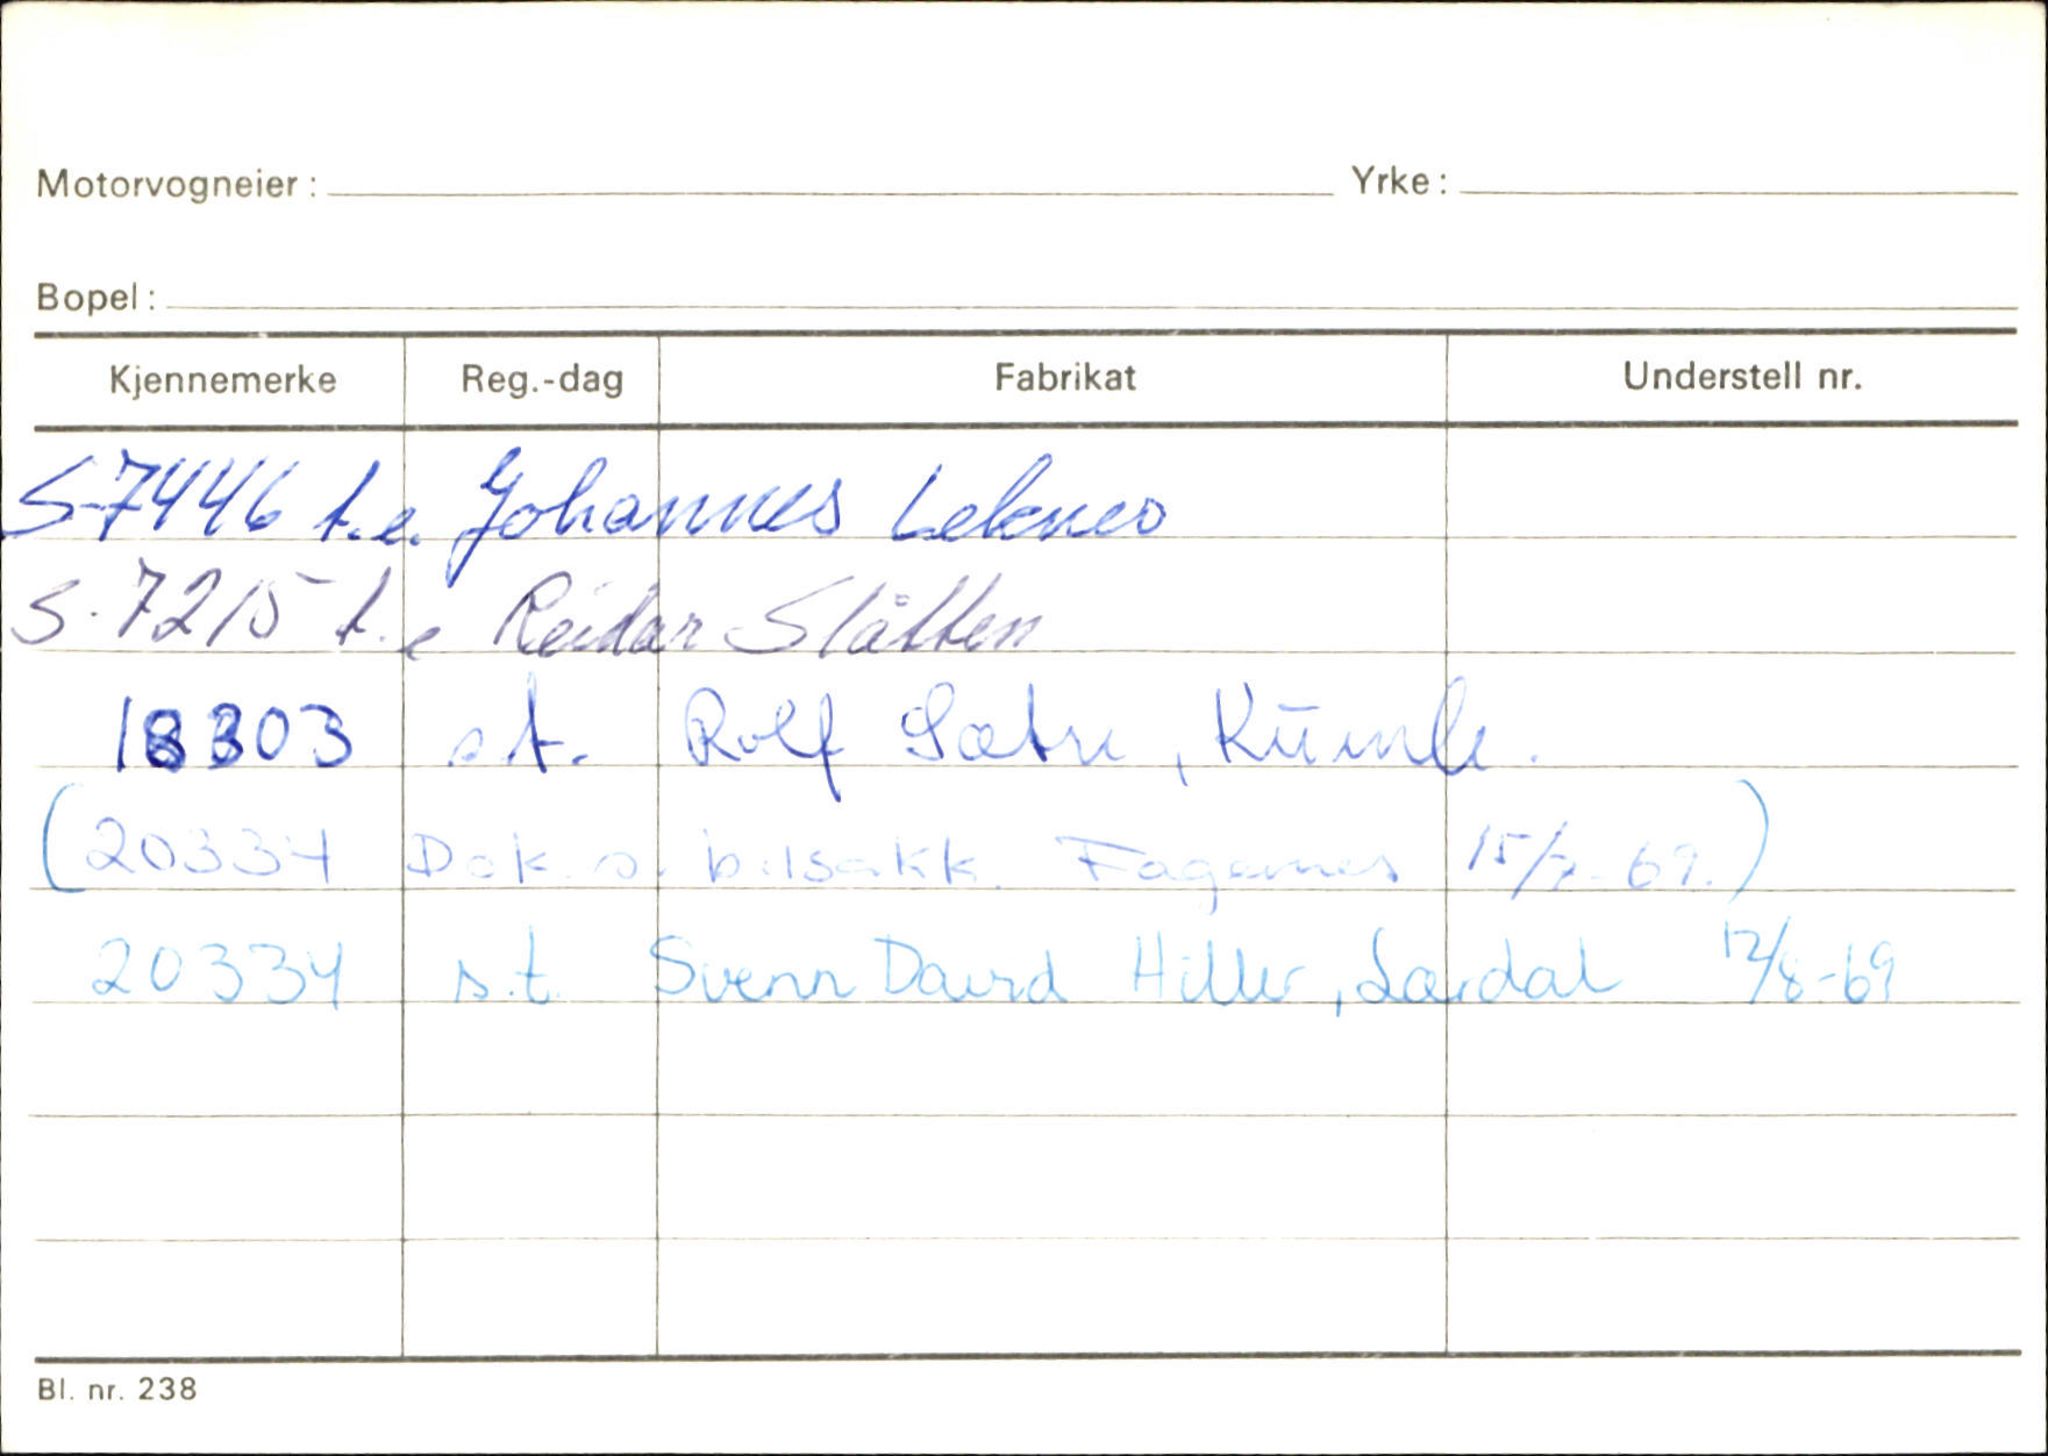 Motorvogneier: Yrke:
Bopel:
Kjennemerke Reg.-dag Fabrikat Understell nr.
S-7446 t.e. Johannes Leknes
S-7215 t.e Reidar Slåtten
18303 s.t. Rolf Sætre,
(20334 Dok. s. bilsakk. Fagernes 15/7-69.)
20334 s.t. Svenn David Hiller, Lærdal 12/8-69
Bl. nr. 238